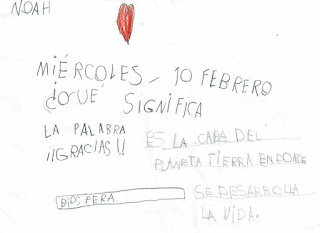 NOAH
MIÉRCOLES - 10 FEBRERO
¿QUÉ SIGNIFICA
LA PALABRA
¡¡GRACIAS!!
ES LA CAPA DEL
PLANETA TIERRA EN DONDE
BIOSFERA
SE DESARROLLA
LA VIDA.